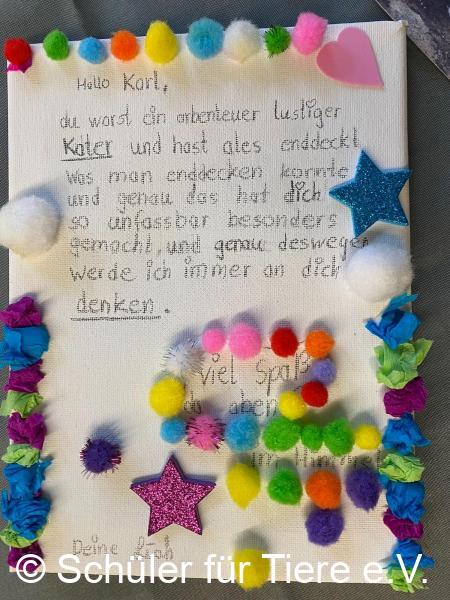 Hallo Karl,
du warst ein arbenteuer lustiger
Kater und hast ales enddeckt
was man enddecken konnte
und genau das hat dich
so unfassbar besonders
gemacht, und genau deswegen
werde ich immer an dich
denken.
viel Spaß
da oben
im Himmel
Deine
© Schüler für Tiere e.V.